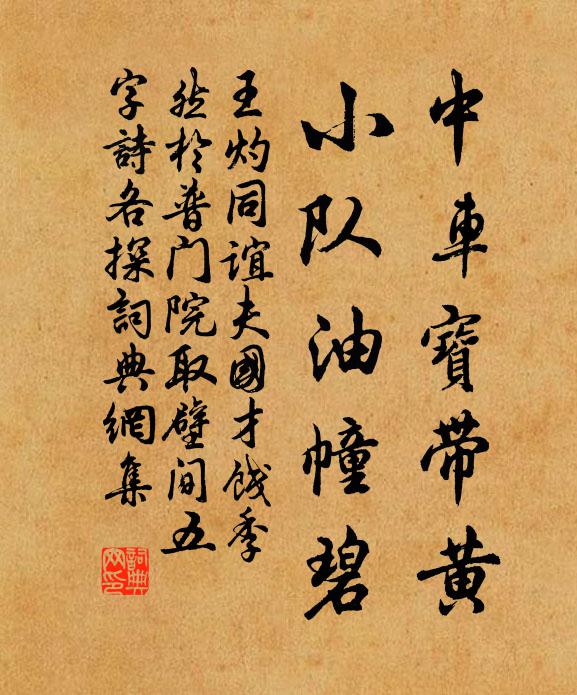 中車寶带黄
小队油幢碧
王灼同誼夫國才餞季
然於普门院取壁间五
字詩各探詞典網集
詞典
网印